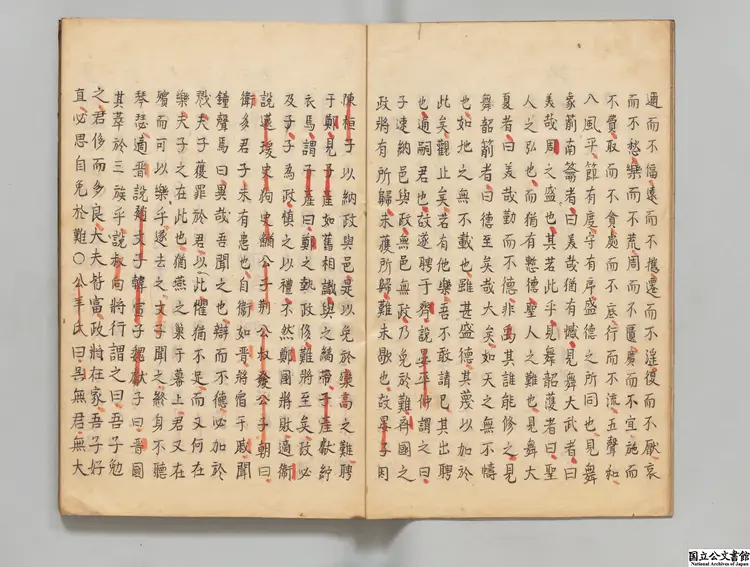 邇而不偪遠而不攜遷而不淫復而不厭哀
而不愁樂而不荒用而不匱廣而不宣施而
不費取而不貪處而不底行而不流五聲和
八風平節有度守有序盛德之所同也見舞
象箾南籥者曰美哉猶有憾見舞大武者曰
美哉周之盛也其若此乎見舞韶濩者曰聖
人之弘也而猶有慙德聖人之難也見舞大
夏者曰美哉勤而不德非禹其誰能修之見
舞韶箾者曰德至矣哉大矣如天之無不幬
也如地之無不載也雖甚盛德其蔑以加於
此矣觀止矣若有他樂吾不敢請已其出聘
也通嗣君也故遂聘于齊說晏平仲謂之曰
子速納邑與政無邑無政乃免於難齊國之
政將有所歸未獲所歸難未歇也故晏子因
陳桓子以納政與邑是以免於欒高之難聘
于鄭見子產如舊相識與之縞帶子產獻紵
衣馬謂子產曰鄭之執政侈難將至矣政必
及子子為政慎之以禮不然鄭國將敗適衛
說蘧瑗史狗史鰌公子荊公叔發公子朝曰
衛多君子未有患也自衛如晉將宿乎戚聞
鐘聲焉曰異哉吾聞之也辯而不德必加於
戮夫子獲罪於君以此懼猶不足而又何在
樂夫子之在此也猶燕之巢于幕上君又在
殯而可以樂乎遂去之文子聞之終身不聽
琴瑟適晉說趙文子韓宣子魏獻子曰晉國
其萃於三族乎說叔向將行謂之曰吾子勉
之君侈而多良大夫皆富政將在家吾子好
直必思自免於難〇公羊氏曰吳無君無大
国立公文書館
National Archives of Japan